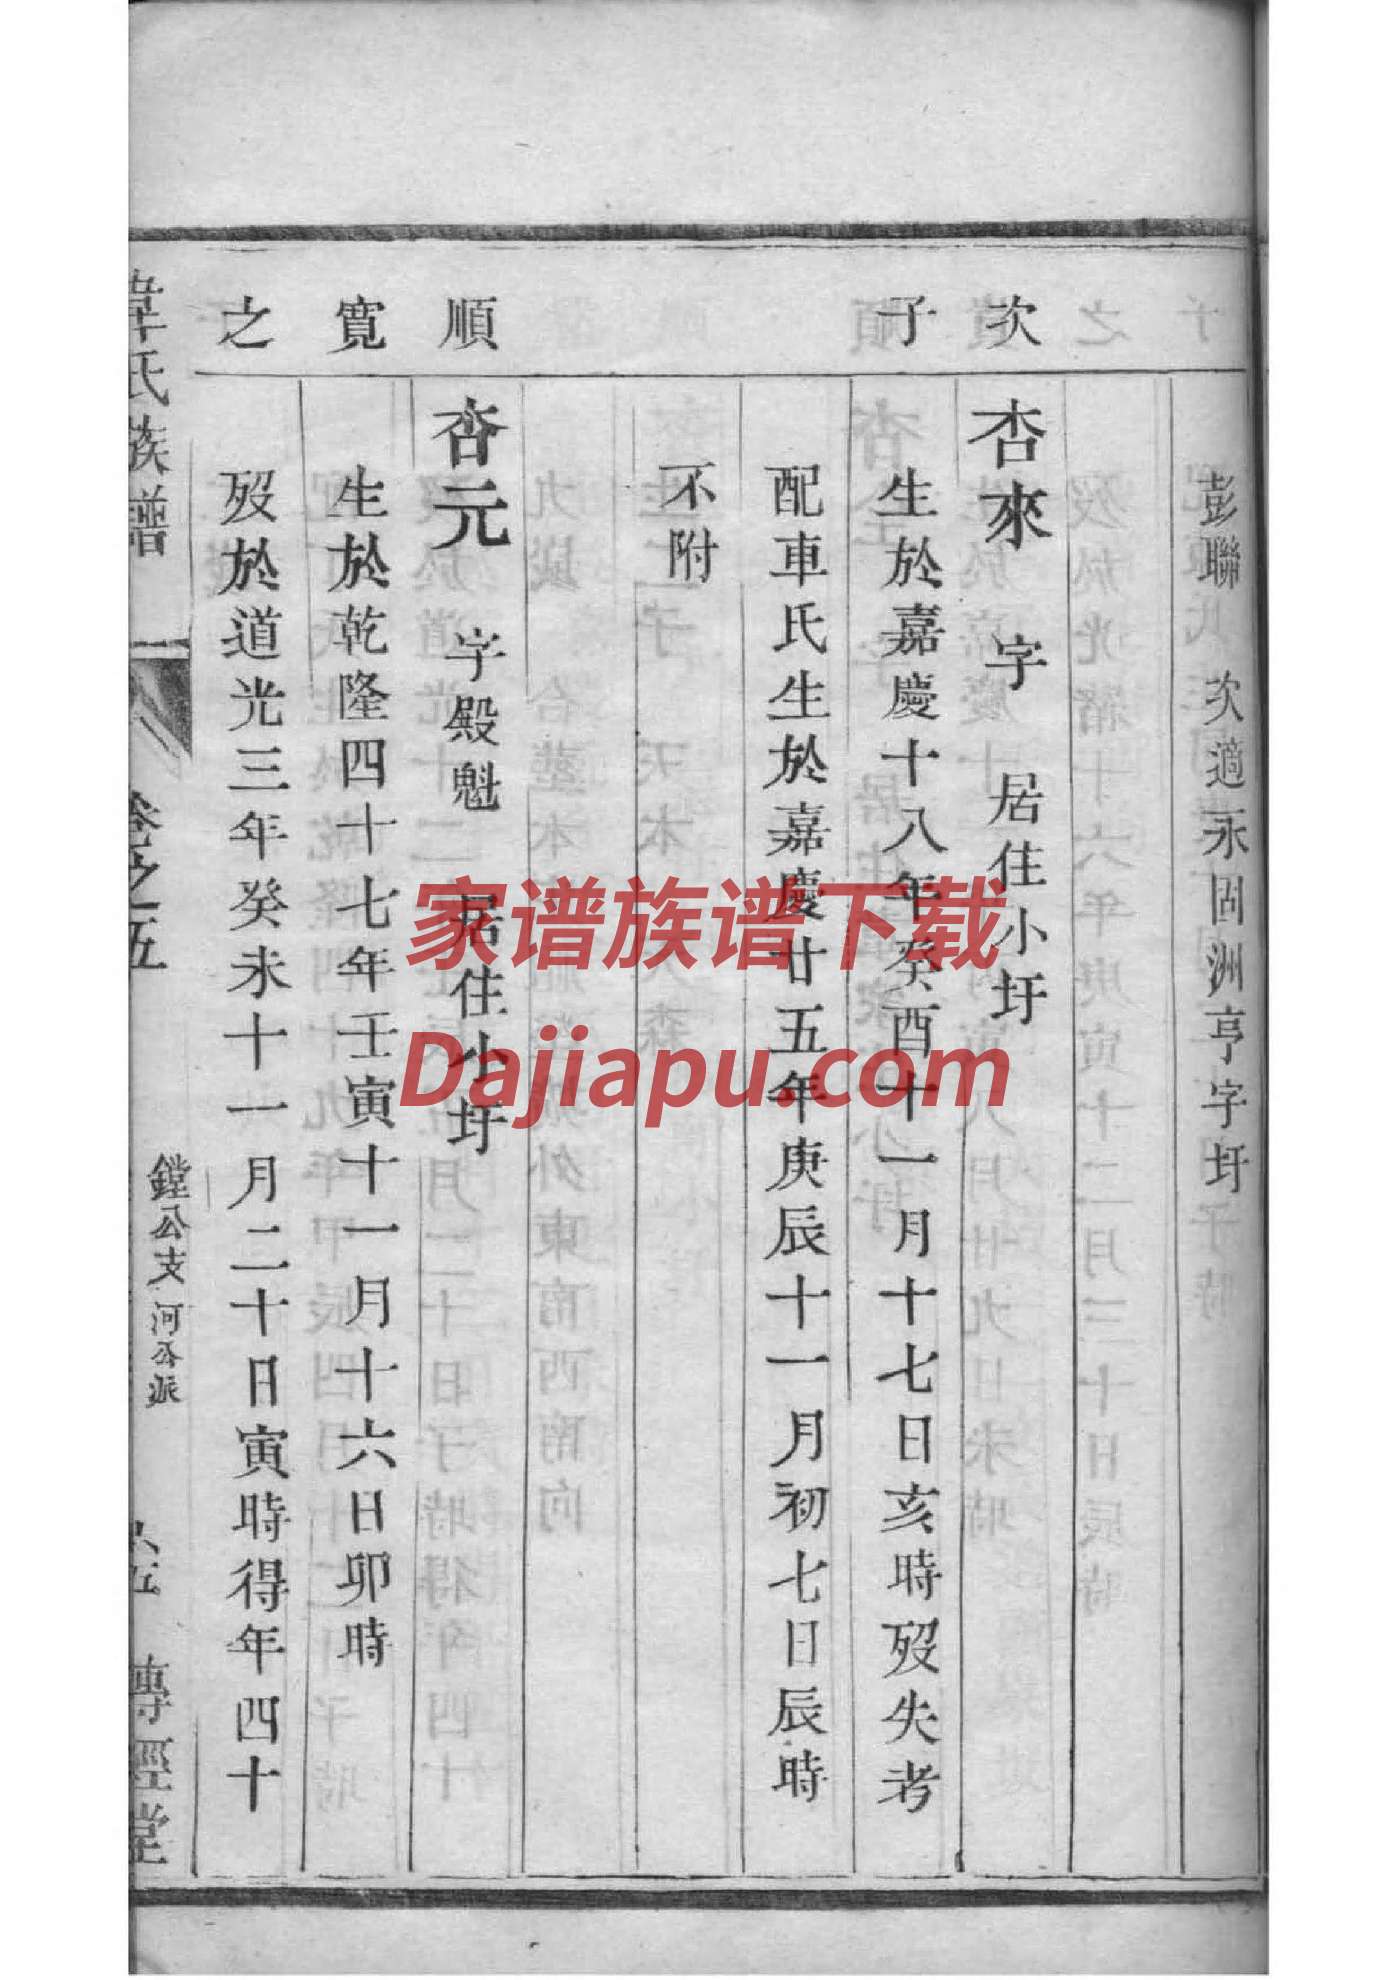 彭聯 次適永固洲亨字圩
次子
杏來 字 居住小圩
生於嘉慶十八年癸酉十一月十七日亥時歿失考
配車氏生於嘉慶廿五年庚辰十一月初七日辰時
不附
順寬之
杏元 字殿魁 居住小圩
生於乾隆四十七年壬寅十一月十六日卯時
歿於道光三年癸未十一月二十日寅時得年四十
韋氏族譜 卷之五
鏜公支 河公派
傳經堂
家谱族谱下载
Dajiapu.com